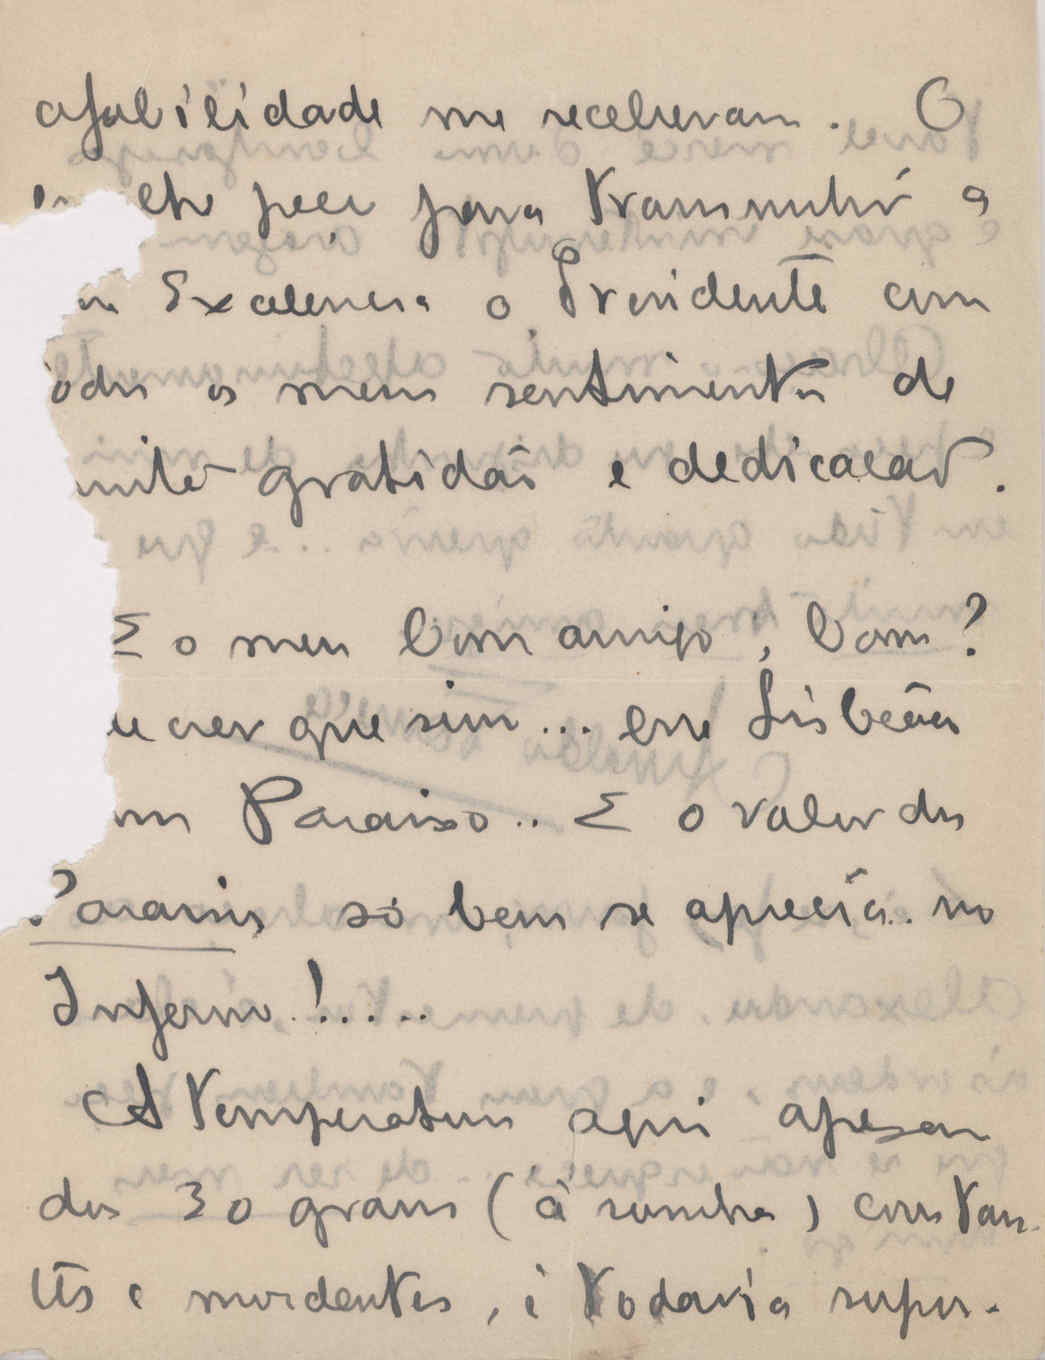 afabilidade me receberam. O
lhe peço para transmitir a
Excelencia o Presidente com
os meus sentimentos de
gratidão e dedicação.
E o meu bom amigo, bom?
crer que sim... em Lisboa
Paraiso.. E o valor dos
Paraisos só bem se aprecia.. no
Inferno!.....
A temperatura aqui apesar
dos 30 graus (à sombra) constan-
tes e mordentes, é todavia supor-